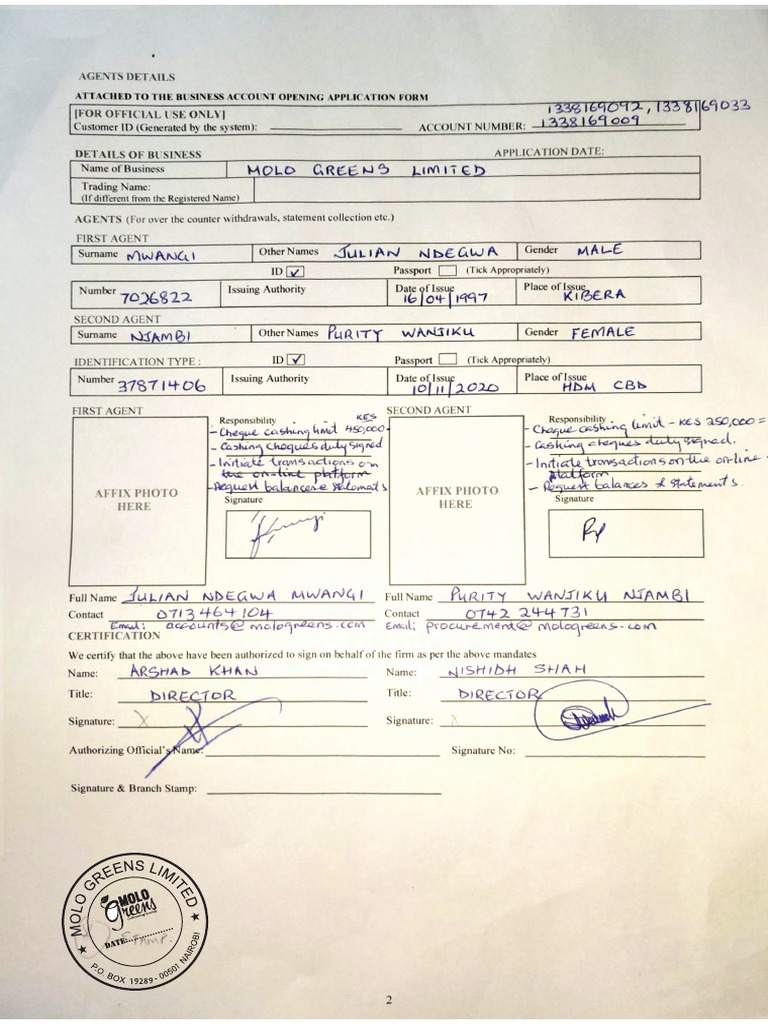 AGENTS DETAILS
ATTACHED TO THE BUSINESS ACCOUNT OPENING APPLICATION FORM
1338169092, 1338169033
[FOR OFFICIAL USE ONLY]
Customer ID (Generated by the system): ACCOUNT NUMBER: 1338169009
DETAILS OF BUSINESS APPLICATION DATE:
Name of Business MOLO GREENS LIMITED
Trading Name:
(If different from the Registered Name)
AGENTS (For over the counter withdrawals, statement collection etc.)
FIRST AGENT
Surname MWANGI Other Names JULIAN NDEGWA Gender MALE
ID ✓ Passport (Tick Appropriately)
Number 7026822 Issuing Authority Date of Issue 16/04/1997 Place of Issue KIBERA
SECOND AGENT
Surname NJAMBI Other Names PURITY WANJIKU Gender FEMALE
IDENTIFICATION TYPE : ID ✓ Passport (Tick Appropriately)
Number 37871406 Issuing Authority Date of Issue 10/11/2020 Place of Issue HDM CBD
FIRST AGENT
AFFIX PHOTO
HERE
Responsibility KES
- Cheque cashing limit 450,000
- Cashing cheques duly signed
- Initiate transactions on
the on-line platform
- Request balances & statements
Signature
SECOND AGENT
AFFIX PHOTO
HERE
Responsibility
- Cheque cashing limit - KES 250,000 =
- Cashing cheques duly signed.
- Initiate transactions on the on-line
platform
- Request balances & statements.
Signature
Full Name JULIAN NDEGWA MWANGI Full Name PURITY WANJIKU NJAMBI
Contact 0713464104 Contact 0742 244731
Email: accounts@mologreens.com Email: procurement@mologreens.com
CERTIFICATION
We certify that the above have been authorized to sign on behalf of the firm as per the above mandates
Name: ARSHAD KHAN Name: NISHIDH SHAH
Title: DIRECTOR Title: DIRECTOR
Signature: X Signature: X
Authorizing Official's Name: Signature No:
Signature & Branch Stamp:
MOLO GREENS LIMITED
MOLO
greens
DATE:
STAMP.
P.O. BOX 19289 - 00501 NAIROBI
2